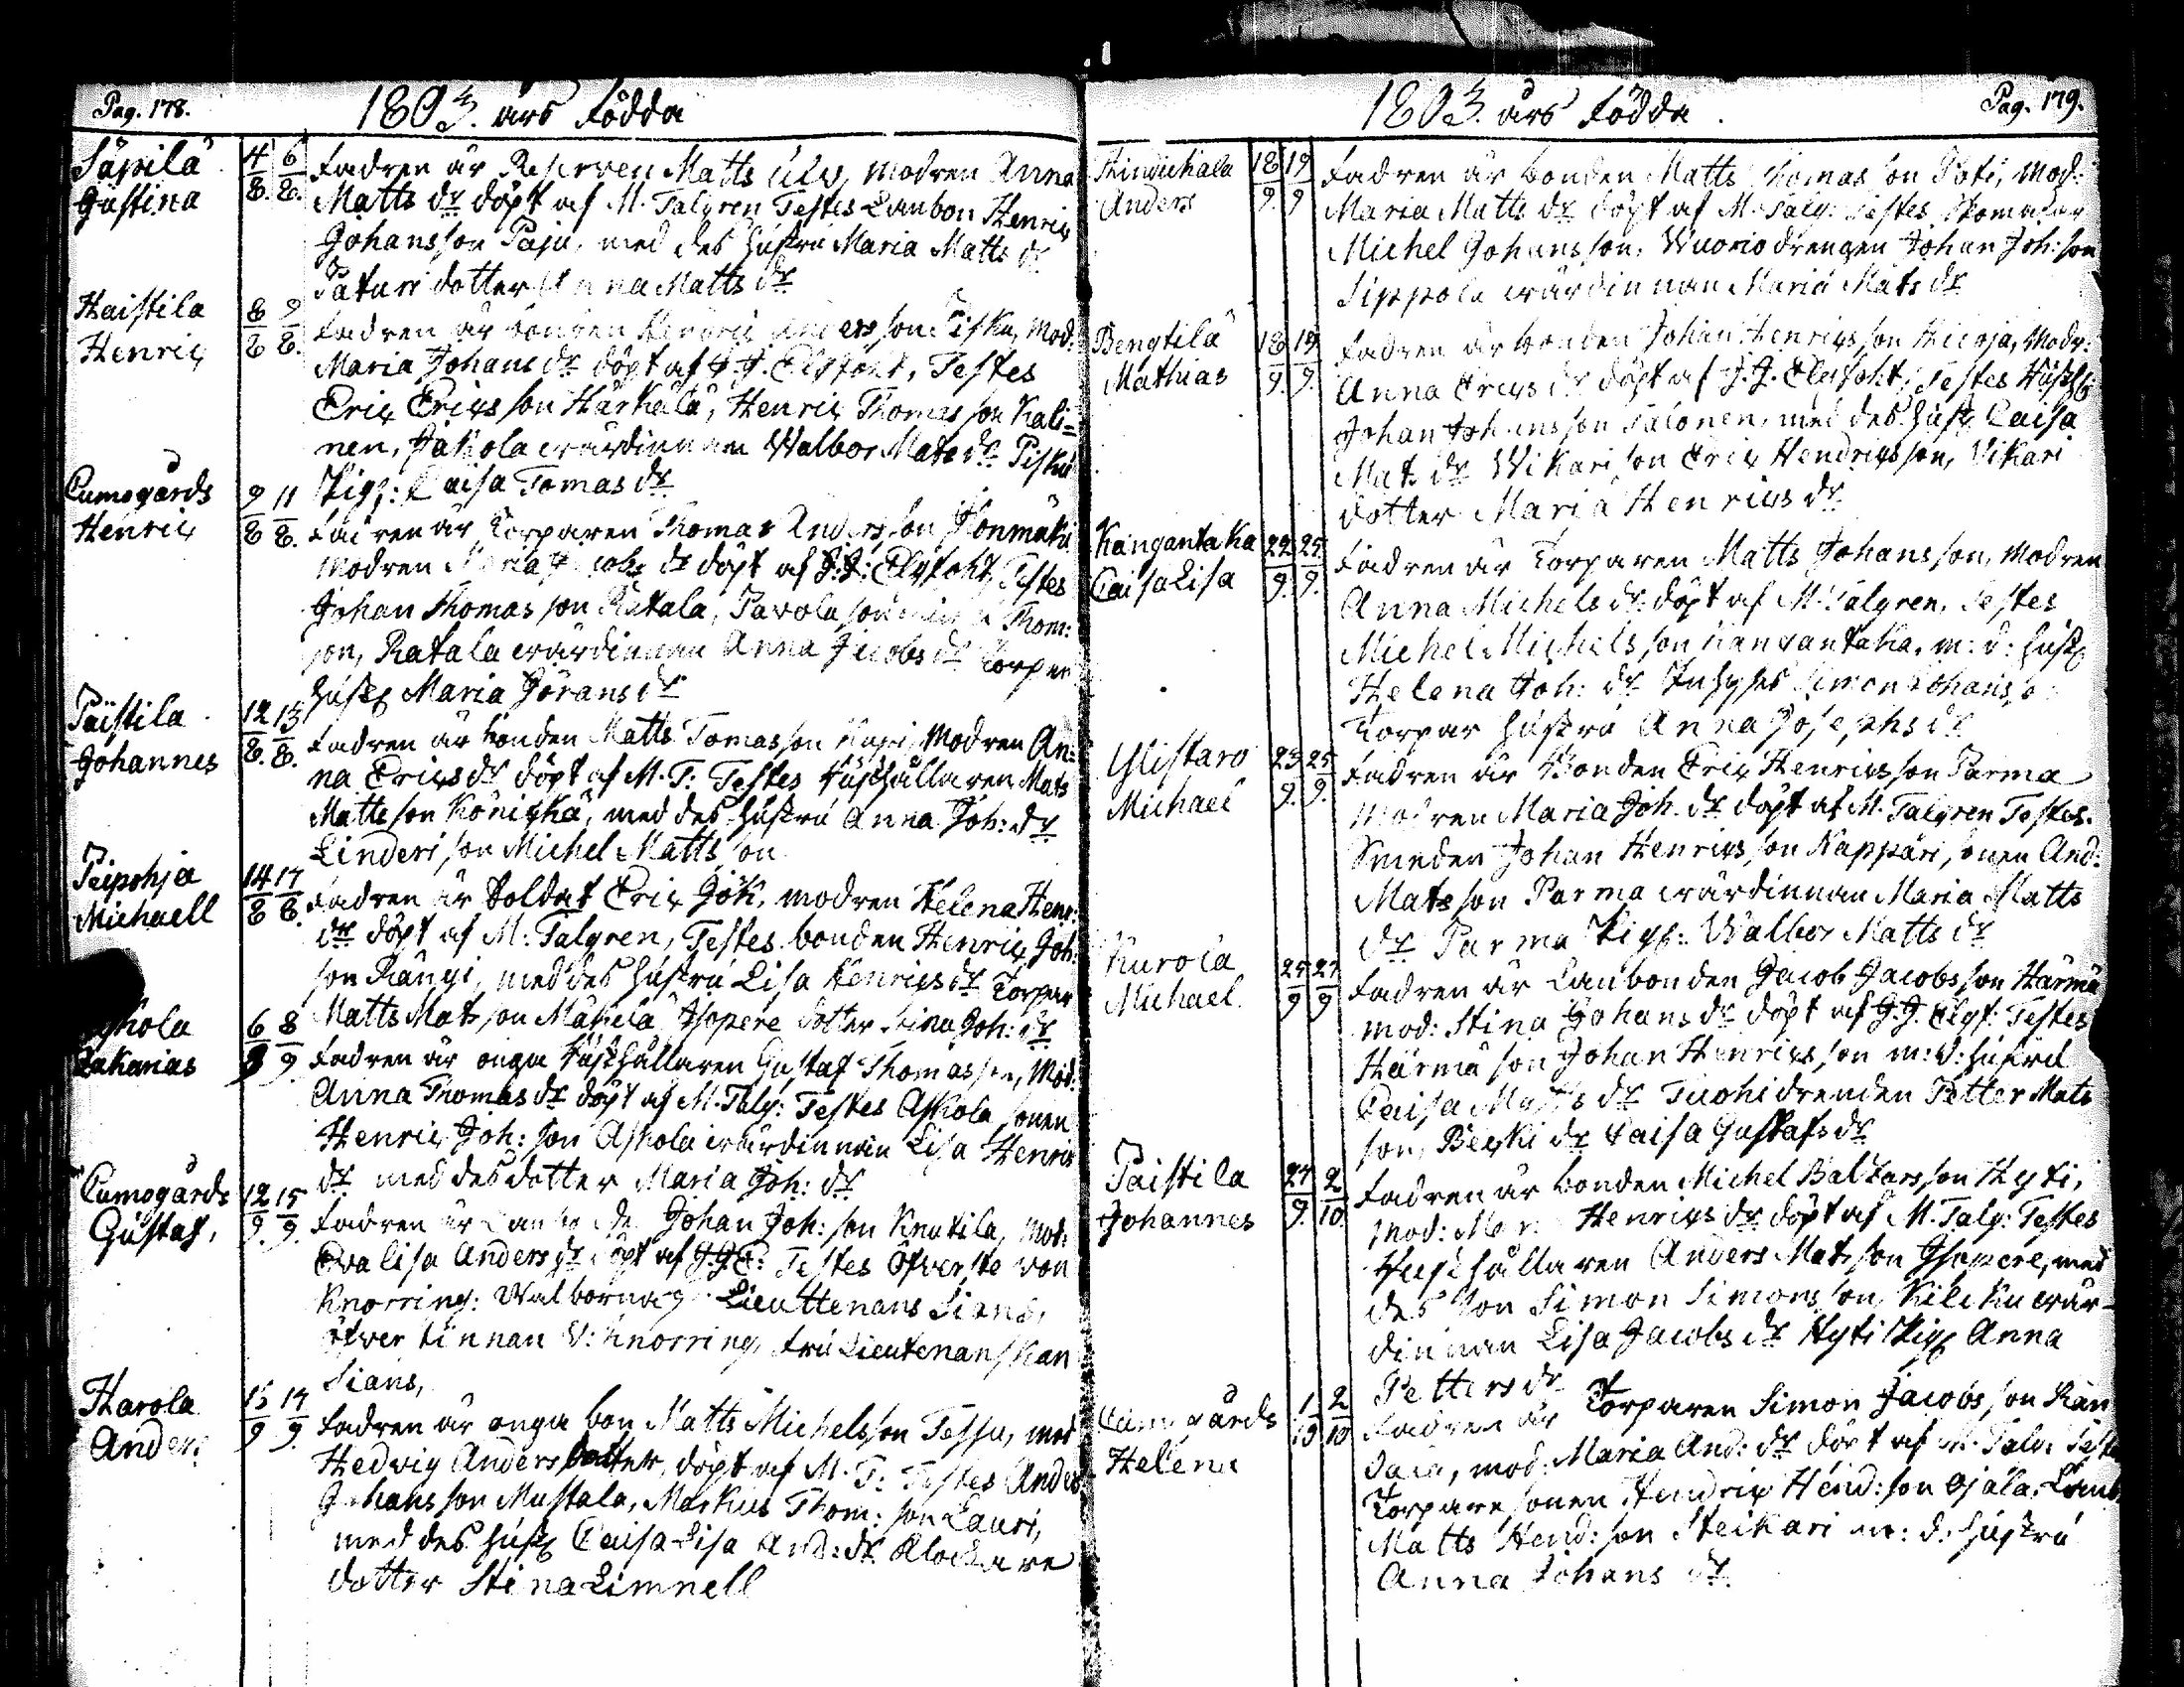 Pag. 178.
1803. års födda
Säpilä 4/8. 6/8. Fadren är Reserven Matts Ulv, modren Anna
Gustina Matts dr döpt af M. Talgren Testes Lanbon Henric
Johansson Paju, med des hustru Maria Matts dr
Paturi dotter Anna Matts dr
Haistila 8/8 9/8. Fadren är bonden Henric Andersson Pisku, Mod:
Henric Maria Johans dr döpt af J. J. Elgfoht, Testes
Eric Ericsson Härkälä, Henric Thomasson Kali=
nen, Jakola wärdinnan Walbor Mats dr Pisku
Pig: Caisa Tomas dr
Cumogårds 9/8 11/8. Fadren är Torparen Thomas Andersson
Henric modren Maria Jacobs dr döpt af J. J: Elgfoht, Testes
Johan Thomasson Ratala, Pavola Thom:
son, Ratala wärdinnan Anna Jacobs dr Torpar
hust Maria Görans dr
Paistila 12/8. 15/8. Fadren är bonden Matts Tomasson Modren An:
Johannes na Erics dr döpt af M. T: Testes Rusthållaren Mats
Mattsson Könickä, med des hustru Anna Joh: dr
Linderi son Michel Matts son
Peipohja 14/8 17/8. Fadren är Soldat Eric Joh, modren Helena Henr:
Michaell dr döpt af M: Talgren, Testes bonden Henric Joh:
son Rångi, med des hustru Lisa Henrics dr Torpar
Matts Matsson Mäkelä Isopere dotter Stina Joh: dr
Askola 6/9 8/9. Fadren är unga Rusthållaren Gustaf Thomasson, Mod:
Zakarias Anna Thomas dr döpt af M. Talg: Testes Askola sonen
Henric Joh: son Askola wärdinnan Lisa Henric
dr med des dotter Maria Joh: dr
Cumogårds 12/9. 15/9. Fadren är Lanbonden Johan Joh: son Knutila, mod:
Gustaf, Eva Lisa Anders dr döpt af J. J. E: Testes Öfverste von
Knorring: Walborna Lieuttenans Sians,
öfverstinnan V: Knorring, fru Lieutenanskan
Sians,
Harola 15/9 17/9. Fadren är unga bon Matts Michelsson Tessu, mod
Anders Hedvig Anders dotter, döpt af M. T: Testes Anders
Johansson Mustala, Markus Thom: son Lauri,
med des hust Caisa Lisa And: dr Klockare
dotter Stina Limnell
1803. års födda.
Pag. 179.
18/9. 19/9 Fadren är bonden Matts Thomasson Poti, Mod:
Anders Maria Matts dr döpt af M. Talg: Testes
Michel Johansson, Wuorio drengen Johan Joh: son
Sippola wärdinnan Maria Mats dr
Bengtilä 18/9. 19/9. Fadren är bonden Johan Henricsson Modr:
Mathias Anna Erics dr döpt af J. J. Elgfoht, Testes Rusth
Johan Johansson Talonen, med des hust Caisa
Mats dr Wikari son Eric Hendricsson, Vikari
dotter Maria Henrics dr
Kangantaka 22/9. 25/9. Fadren är Torparen Matts Johansson, Modren
Caisa Lisa Anna Michels dr döpt af M. Talgren, Testes
Michel Michelsson Kangantaka, m: d: hust
Helena Joh: dr Simon Johansson
Torpar hustru Anna Josephs dr
Ylistaro 23/9. 25/9. Fadren är Bonden Eric Henricsson Parma
Michael Modren Maria Joh. dr döpt af M. Talgren Testes.
Smeden Johan Henricsson Kappäri, sonen And:
Matsson Parma wärdinnan Maria Matts
dr Parma Pig: Walbor Matts dr
Kurola 25/9 27/9 Fadren är Lanbonden Jacob Jacobsson Härmä
Michael. mod: Stina Johans dr döpt af J. J. Elgf: Testes
Härmä son Johan Henricsson m: d: hustru
Caisa Matts dr Tuohi drenden Petter Mats
son, Berki dr Caisa Gustafs dr
Paistila 27/9. 2/10. Fadren är bonden Michel Baltzarsson Hyti,
Johannes Mod: Henrics dr döpt af M. Talg: Testes
Rusthållaren Anders Matsson Isopere, med
des son Simon Simonsson, Kilcku wär-
dinnan Lisa Jacobs dr Hyti Pig Anna
Petters dr
Cumogårds 1/10 2/10 Fadren är Torparen Simon Jacobsson Ran
Helena dala, mod: Maria And: dr döpt af M. Talg: Teste
Torpare sonen Hendric Hend: son Ojala, Lanb
Matts Hend: son Steikari m: d: hustru
Anna Johans dr.